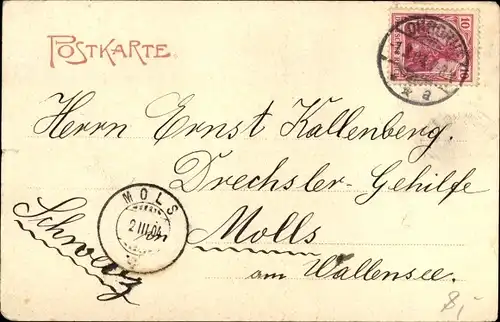 POSTKARTE
10
Herrn Ernst Kallenberg.
Drechsler-Gehilfe
MOLS
2 III.04
Schweiz
Molls
am Wallensee.
8,-